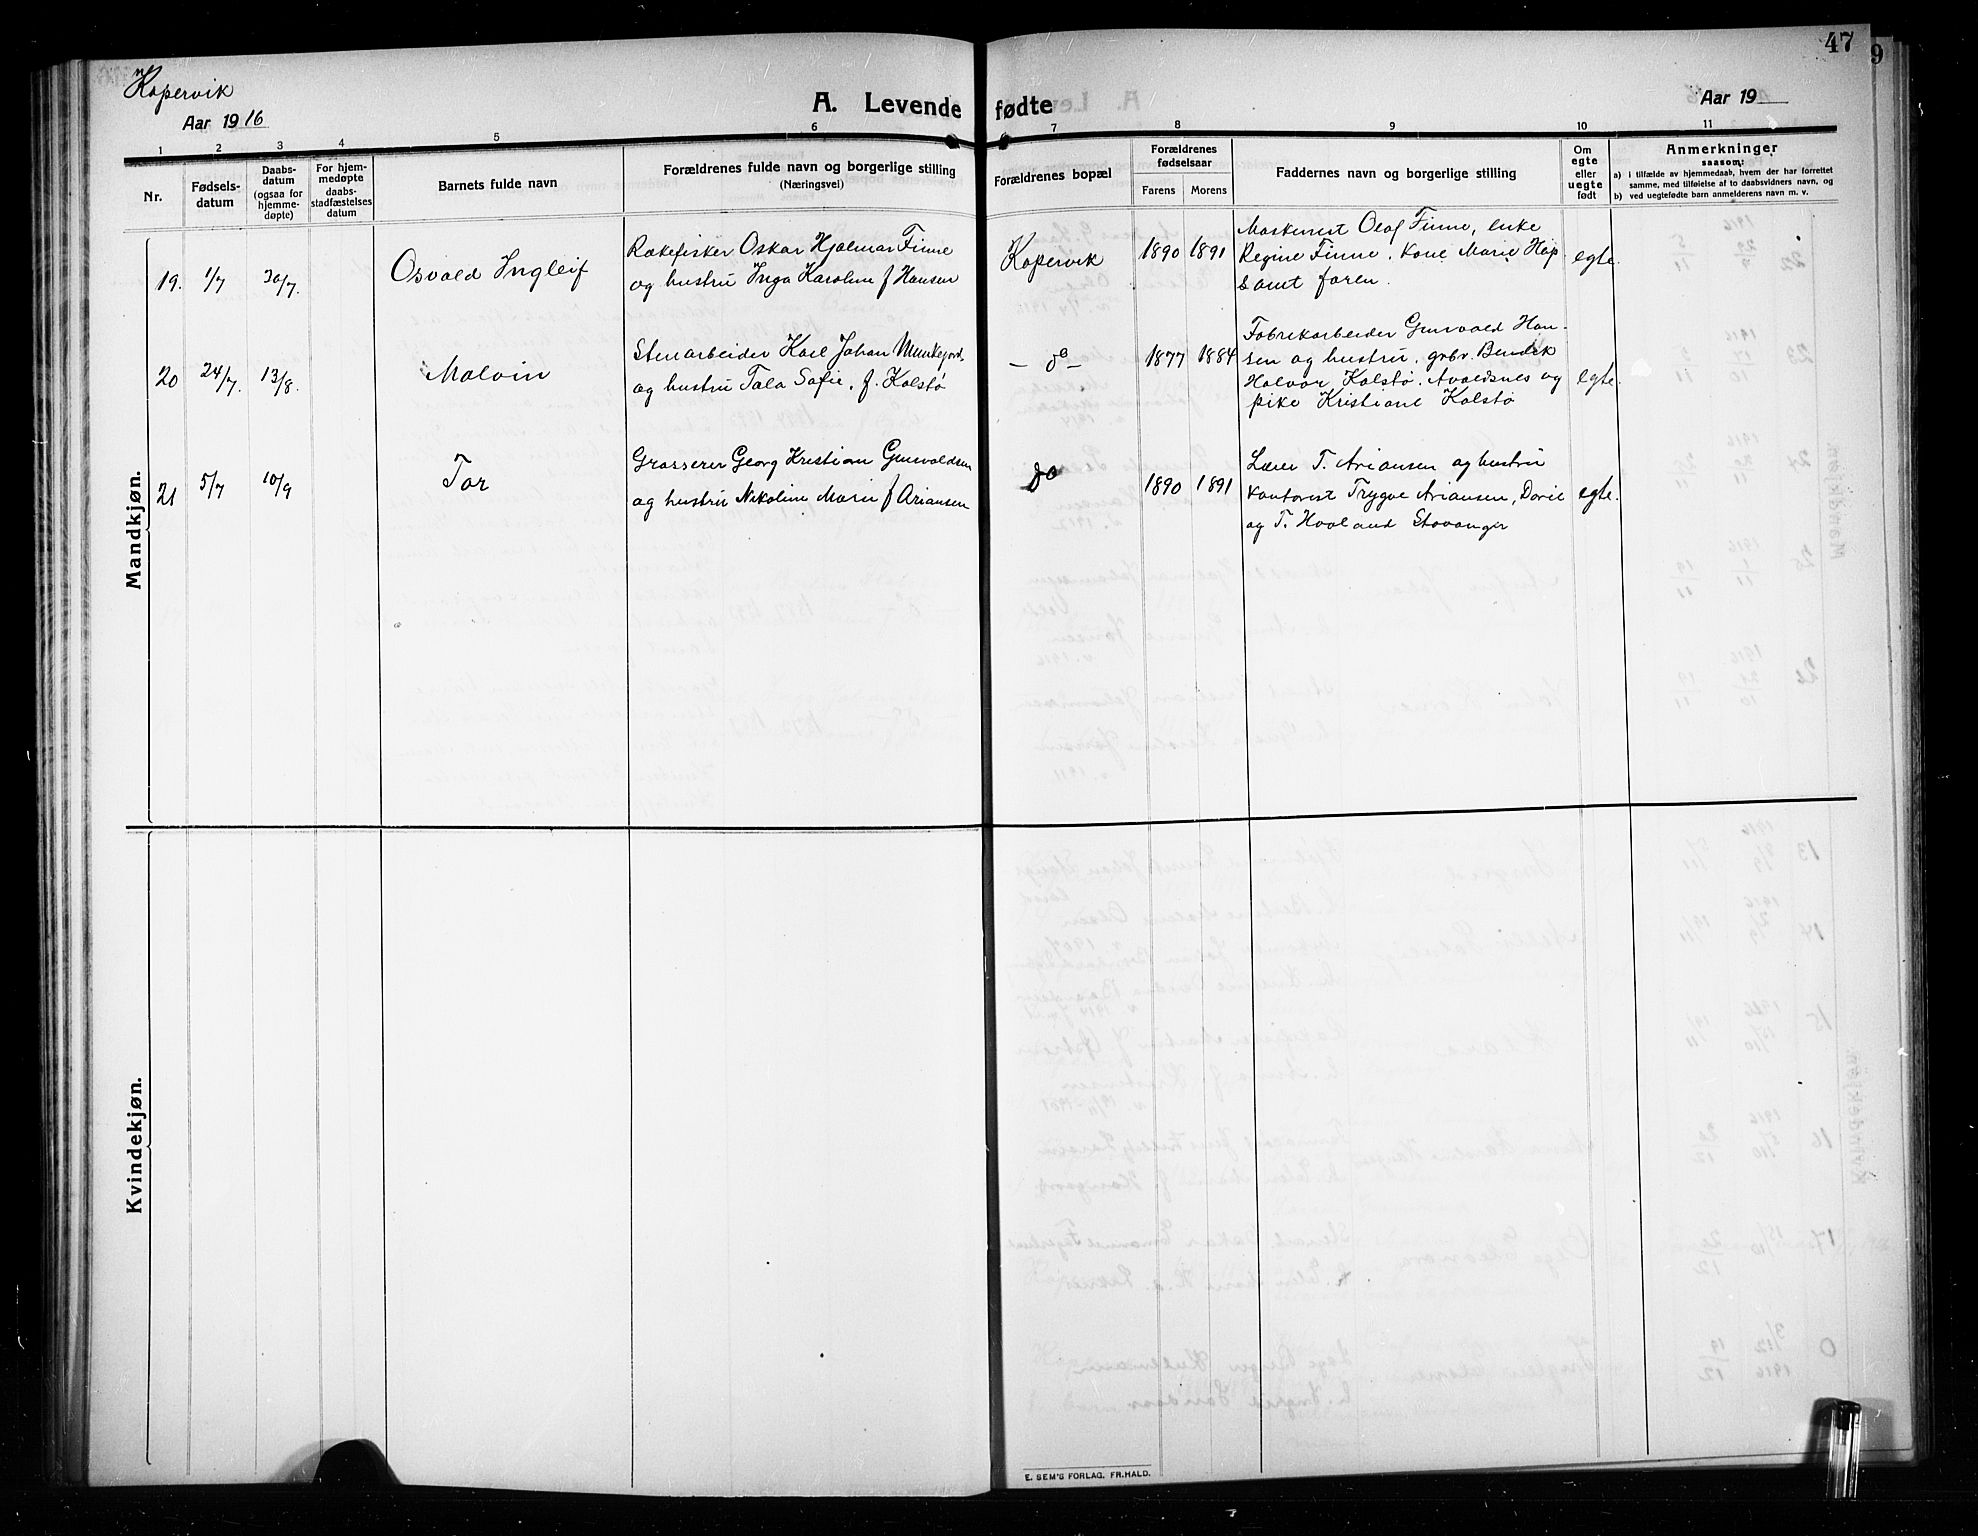 Kopervik
Aar 1916
A. Levende fødte
Aar 19
47
9
1 2 3 4 5 6 7 8 9 10 11
Nr.
Fødsels-
datum
Daabs-
datum
(ogsaa for
hjemme-
døpte)
For hjem-
medøpte
daabs-
stadfæstelses
datum
Barnets fulde navn
Forældrenes fulde navn og borgerlige stilling
(Næringsvei)
Forældrenes bopæl
Forældrenes
fødselsaar
Farens Morens
Faddernes navn og borgerlige stilling
Om
egte
eller
uegte
født
Anmerkninger
saasom:
a) i tilfælde av hjemmedaab, hvem der har forrettet
samme, med tilføielse af to daabsvidners navn, og
b) ved uegtefødte barn anmelderens navn m. v.
Mandkjøn.
19. 1/7 30/7. Osvald Ingleif
Rækefisker Oskar Hjalmar Finne
og hustru Inga Karoline f Hansen
Kopervik 1890 1891
Maskenist Olaf Finne, enke
Regine Finne. Kone Marie Hop
samt faren.
egte.
20 24/7. 13/8. Malvin
Stenarbeider Karl Johan Munkejord,
og hustru Tala Sofie, f. Kolstø
- do - 1877 1884
Fabrikarbeider Gunvald Han-
sen og hustru, grbr. Bendik
Halvor Kolstø. Avaldsnes og
pike Kristiane Kolstø
egte.
21 5/7 10/9 Tor
Grosserer Georg Kristian Gunvaldsen
og hustru Nikoline Marie f Ariansen
do 1890 1891
Lærer T. Ariansen og hustru
Kontorist Trygve Ariansen, Dorie
og T. Hvoland Stavanger
egte.
Kvindekjøn.
E. SEM'S FORLAG, FR.HALD.